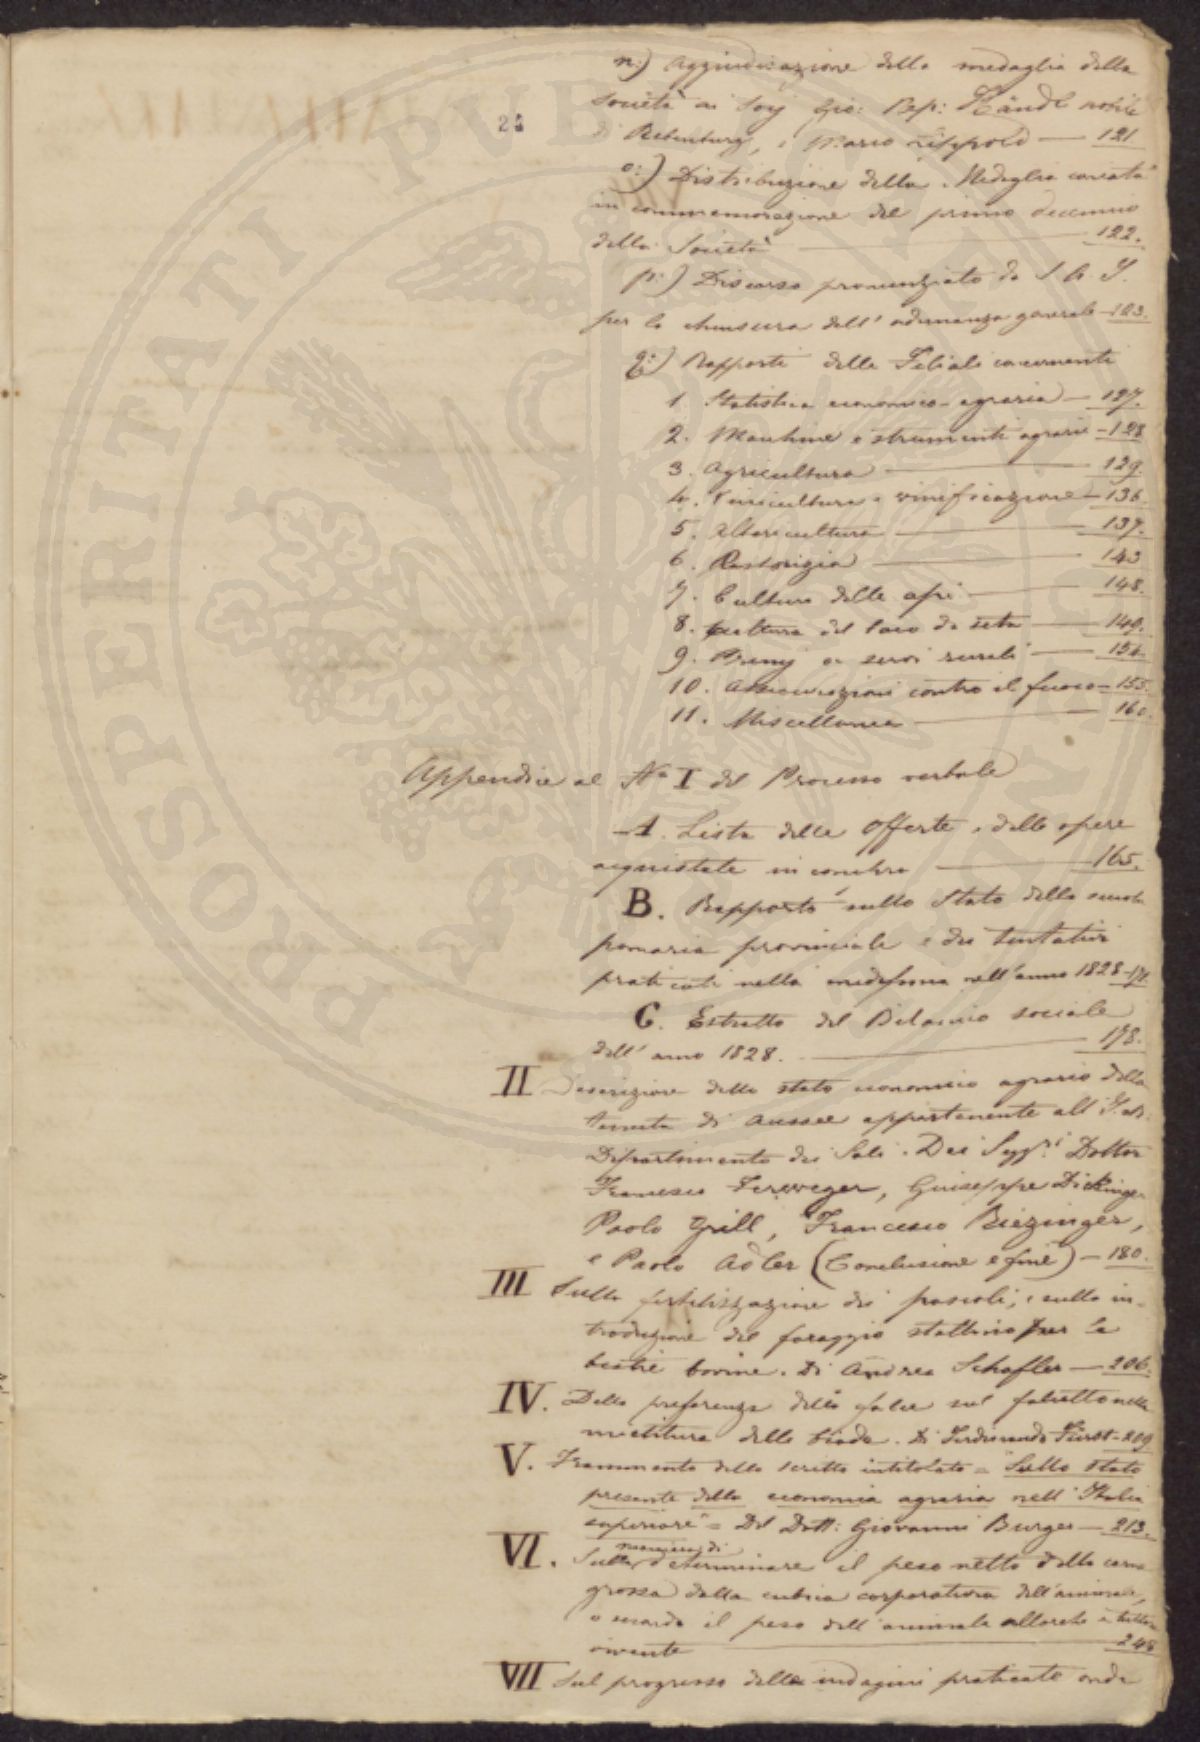 n:) Aggiudicazione della medaglia della
Società ai Sorj Gio: Bap: Händl nobile
di Rebenburg, e Marco Lippold — 121
o:) Distribuzione della Medaglia coniata
in commemorazione del primo decennio
della Società — 122.
p:) Discorso pronunziato da S. A. I.
per la chiusura dell' adunanza generale — 123.
q:) Rapporti delle Filiali concernenti
1. Statistica economico-agraria — 127.
2. Machine e strumenti agrarii — 128
3. Agricultura — 129.
4. vinificazione — 136.
5. Alboricultura — 137.
6. Pastorizia — 143
7. Cultura delle api — 148.
8. Cultura del baco da seta — 149.
9. Premj ai servi rurali — 154.
10. Assicurazioni contro il fuoco — 155.
11. Miscellanea — 160.
Appendice al No I del Processo verbale
A. Lista delle offerte, e delle opere
acquistate in — 165.
B. Rapporto sullo Stato della scuola
pomaria provinciale e dei tentativi
praticati nella medesima nell'anno 1828 — 171.
C. Estratto del Bilancio sociale
dell' anno 1828. — 178.
II Descrizione dello stato economico agrario della
tenuta di Aussee appartenente all' I. R.
Dipartimento dei Sali. Dei Sigg.ri Dottor
Francesco, Giuseppe Dickinger
Paolo Grill, Francesco Biezinger,
e Paolo Adler (Conclusione e fine) — 180.
III Sulla fertilizzazione dei pascoli, e sulla in-
troduzione del foraggio stallino per le
bestie bovine. Di Andrea Schafler — 206.
IV. Della preferenza della falce sul falcetto nella
mietitura delle biade. Di Ferdinando Fürst — 209
V. Frammento dello scritto intitolato = Sullo stato
presente della economia agraria nell' Italia
superiore" = Del Dott: Giovanni Burger — 213.
VI. Sulla maniera di determinare il peso netto della carne
grossa dalla cubica corporatura dell'animale,
o ossia il peso dell'animale allorchè è tuttora
vivente — 248
VII Sul progresso delle indagini praticate onde
PROSPERITATI PUBLICAE